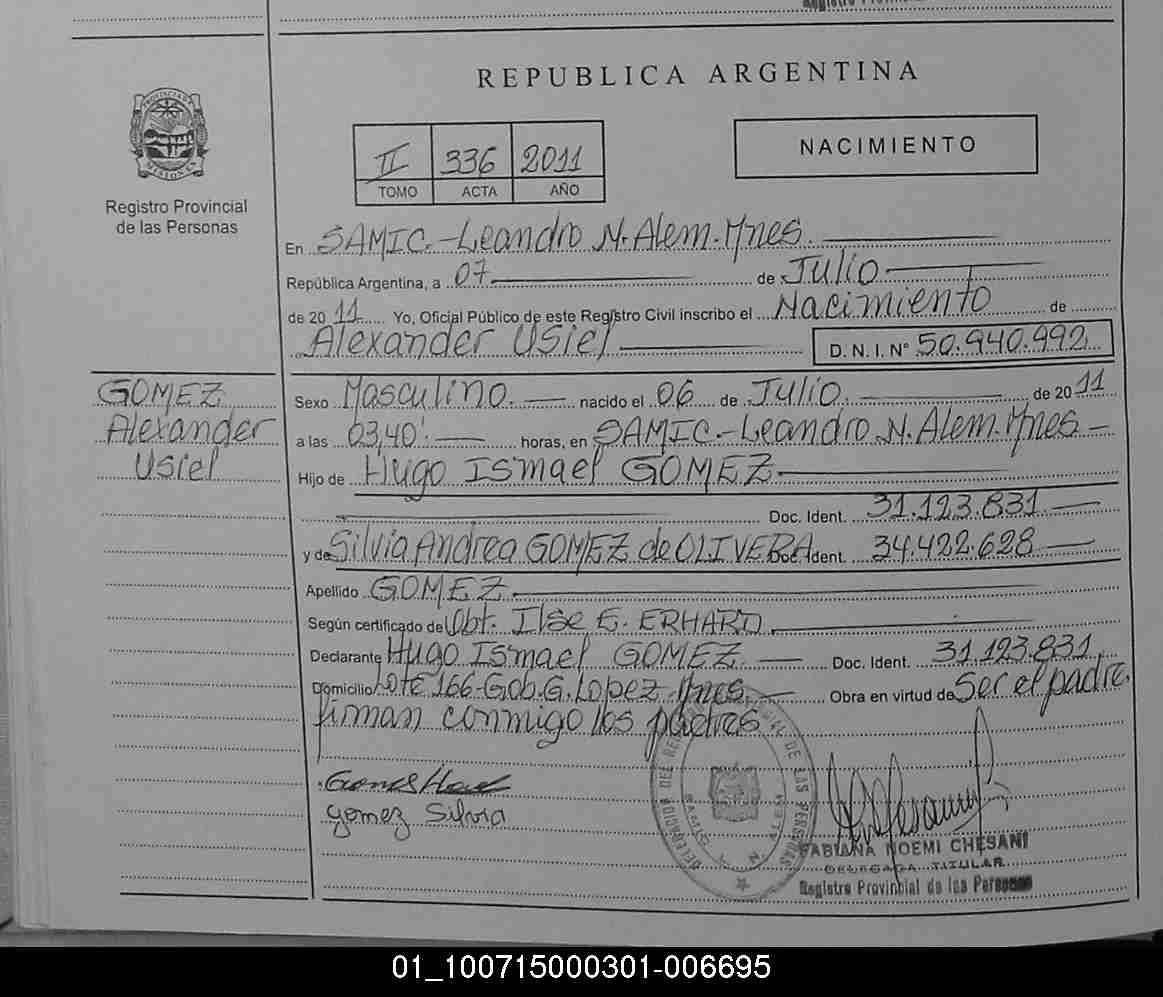 REPUBLICA ARGENTINA
PROVINCIA DE MISIONES
Registro Provincial
de las Personas
II 336 2011
TOMO ACTA AÑO
NACIMIENTO
En SAMIC.-Leandro N. Alem. Mnes.
República Argentina, a 07 de Julio
de 2011 Yo, Oficial Público de este Registro Civil inscribo el Nacimiento de
Alexander Usiel D. N. I. Nº 50.940.992
GOMEZ
Alexander
Usiel
Sexo Masculino. nacido el 06 de Julio. de 2011
a las 03,40' horas, en SAMIC.-Leandro N. Alem. Mnes
Hijo de Hugo Ismael GOMEZ
Doc. Ident. 31.123.831
y de Silvia Andrea GOMEZ de OLIVERA Doc. Ident. 34.422.628
Apellido GOMEZ
Según certificado de Obt. Ilse E. ERHARD
Declarante Hugo Ismael GOMEZ. Doc. Ident. 31.123.831
Domicilio Lote 166-Gob. G. Lopez. Mnes. Obra en virtud de Ser el padre.
firman conmigo los padres
Gomez
gomez Silvia
DELEGACION DEL REGISTRO PROVINCIAL DE LAS PERSONAS
FABIANA NOEMI CHESANI
DELEGADA TITULAR
Registro Provincial de las Personas
01_100715000301-006695